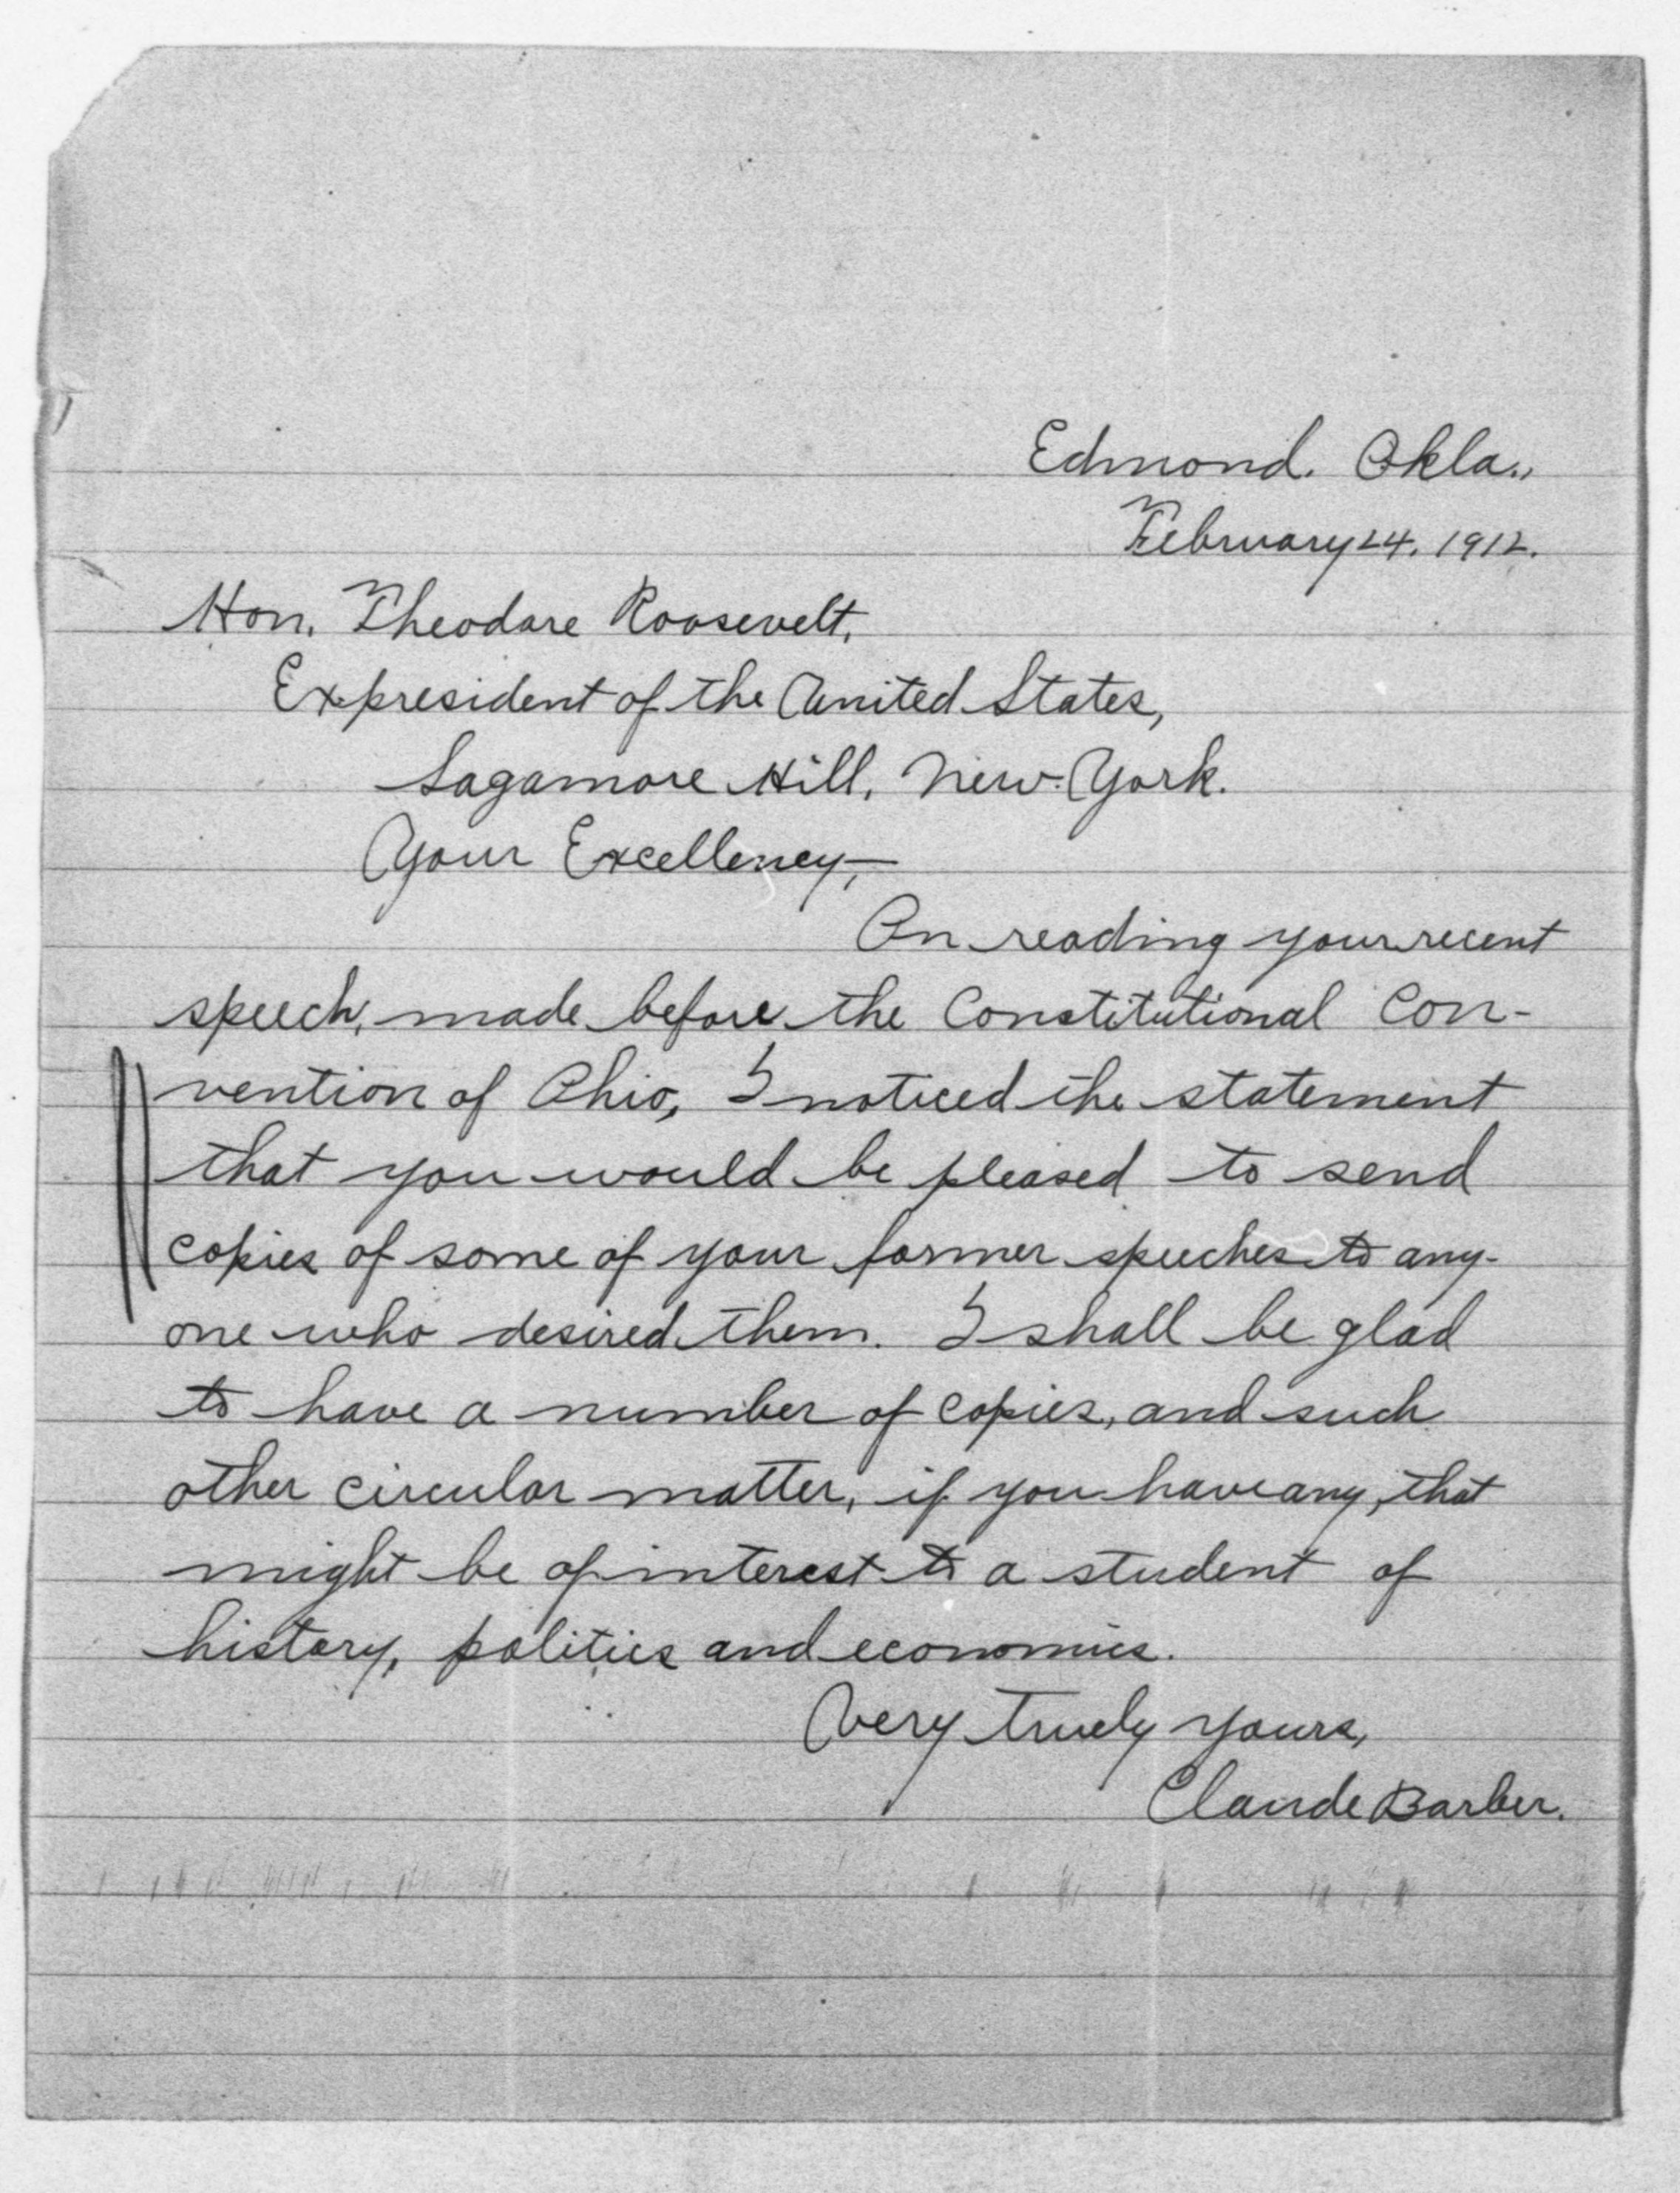 Edmond. Okla.,
February 24, 1912.
Hon. Theodore Roosevelt,
Expresident of the United States,
Sagamore Hill, New York.
Your Excellency,—
On reading your recent
speech, made before the Constitutional Con-
vention of Ohio, I noticed the statement
that you would be pleased to send
copies of some of your former speeches to any-
one who desired them. I shall be glad
to have a number of copies, and such
other circular matter, if you have any, that
might be of interest to a student of
history, politics and economics.
Very truely yours,
Claude Barber.